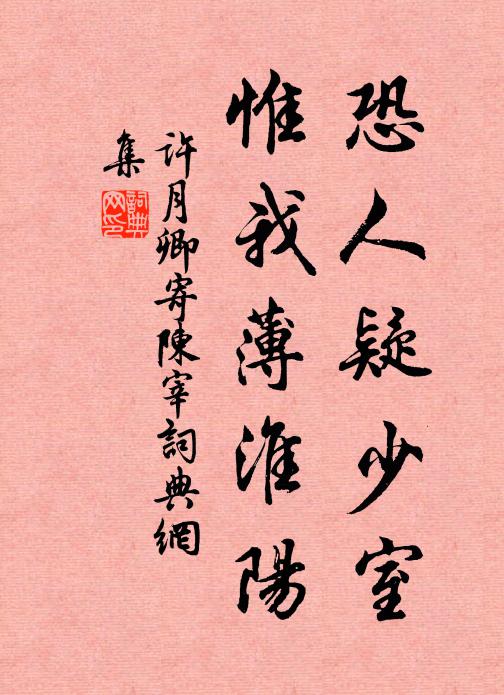 恐人疑少室
惟我薄淮陽
許月卿寄陳宰詞典網
集
詞典網印